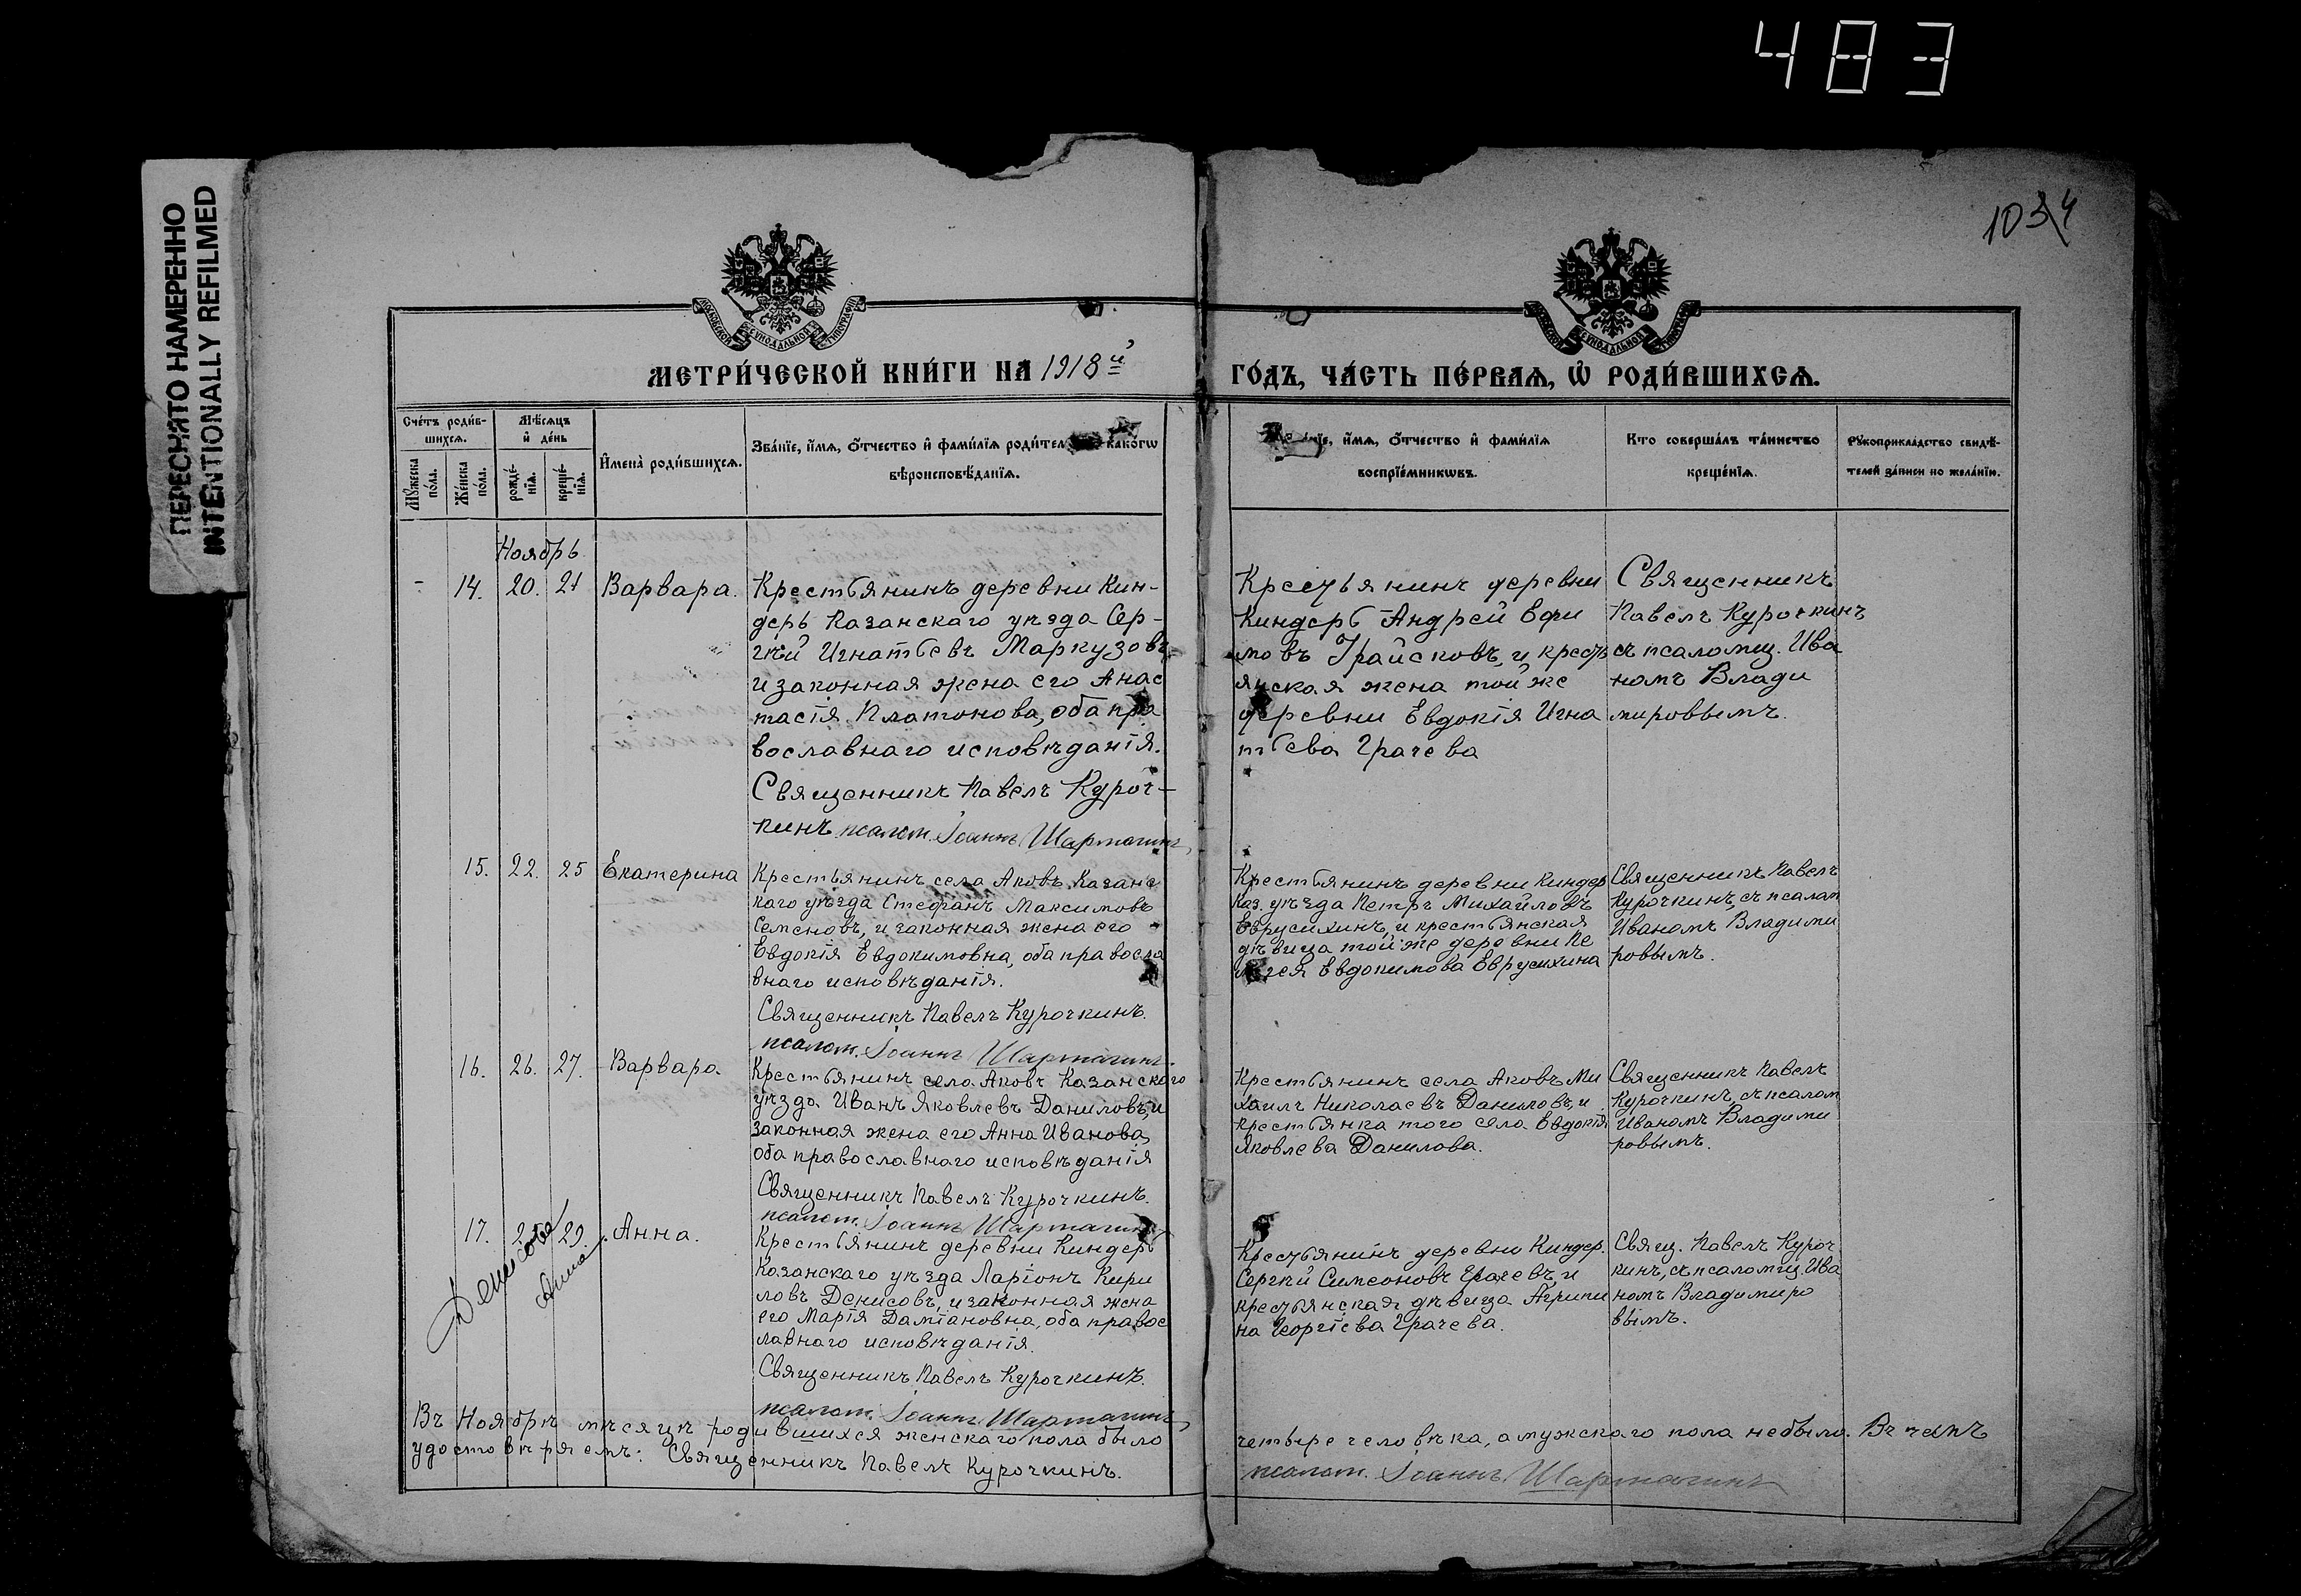 483
ПЕРЕСНЯТО НАМЕРЕННО
INTENTIONALLY REFILMED
1034
МЕТРИ́ЧЕСКОЙ КНИ́ГИ НА 1918й
ГО́ДЪ, ЧА́СТЬ ПЕ́РВАѦ, Ѡ҆ РОДИ́ВШИХСѦ.
Сче́тъ роди́в-
шихсѧ.
Мꙋ́жеска по́ла.
Же́нска по́ла.
Мѣ́сѧцъ
и҆ де́нь
рожде́-
нїѧ.
креще́-
нїѧ.
И҆мена̀ роди́вшихсѧ.
Зва́нїе, и҆́мѧ, ѻ҆́тчество и҆ фами́лїѧ родите како́гѡ
вѣроисповѣ́данїѧ.
и҆́мѧ, ѻ҆́тчество и҆ фами́лїѧ
воспрїе́мникѡвъ.
Кто соверша́лъ та́инство
креще́нїѧ.
Рꙋкоприкла́дство свидѣ́-
телей за́писи по жела́нїю.
Ноябрь
- 14. 20. 21 Варвара.
Крестьянинъ деревни Кин-
деръ Казанскаго уѣзда Сер-
гѣй Игнатьевъ Маркузовъ,
и законная жена его Анас
тасія Платонова, оба пра
вославнаго исповѣданія.
Священникъ Павелъ Куроч-
кинъ псалом. Іоаннъ Шармагинъ
Крестьянинъ деревни
Киндерь Андрей Ефи
мовъ Грайсковъ, и кресть
янская жена той же
деревни Евдокія Игна
тьева Грачева
Священникъ
Павелъ Курочкинъ
съ псаломщ. Ива
номъ Влади
мировымъ.
15. 22. 25 Екатерина
Крестьянинъ села Аковъ Казанс
каго уѣзда Стефанъ Максимовъ
Семеновъ, и законная жена его
Евдокія Евдокимовна, оба правосла
внаго исповѣданія.
Священникъ Павелъ Курочкинъ.
псалом. Іоаннъ Шармагинъ
Крестьянинъ деревни Киндер
Каз. уѣзда Петръ Михайловъ
Еврусихинъ, и крестьянская
дѣвица той же деревни Пе
лагея Евдокимова Еврусихина
Священникъ Павелъ
Курочкинъ, съ псалом
Иваномъ Владими
ровымъ.
16. 26. 27. Варвара
Крестьянинъ села Аковъ Казанскаго
уѣзда Иванъ Яковлевъ Даниловъ, и
законная жена его Анна Иванова,
оба православнаго исповѣданія
Священникъ Павелъ Курочкинъ.
псалом. Іоаннъ Шармагинъ
Крестьянинъ села Аковъ Ми
хаилъ Николаевъ Даниловъ, и
крестьянка того села Евдокія
Яковлева Данилова.
Священникъ Павелъ
Курочкинъ, съ псалом
Иваномъ Владими
ровымъ.
17. 29. Анна.
Денисова
Анна
Крестьянинъ деревни Киндерь
Казанскаго уѣзда Ларіонъ Кири
ловъ Денисовъ, и законная жена
его Марія Даміановна, оба правос
лавнаго исповѣданія.
Священникъ Павелъ Курочкинъ.
псалом. Іоаннъ Шармагинъ
Крестьянинъ деревни Киндер.
Сергѣй Симеоновъ Грачевъ, и
крестьянская дѣвица Агрипи
на Георгіева Грачева.
Свящ. Павелъ Куроч
кинъ, съ псаломщ. Ива
номъ Владимиро
вымъ.
Въ Ноябрѣ мѣсяцѣ родившихся женскаго пола было четыре человѣка, а мужскаго пола не было. Въ чемъ
удостовѣряемъ: Священникъ Павелъ Курочкинъ. псалом. Іоаннъ Шармагинъ